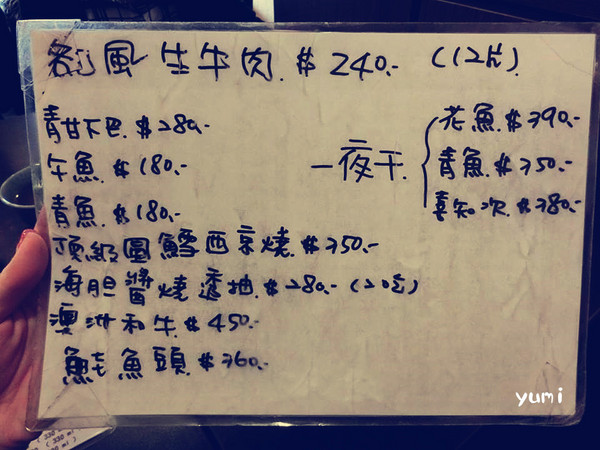 刣風生牛肉.$240.-（12片）.
青甘下巴.$280.-
午魚.$180.-
青魚.$180.-
頂級圓鱈西京燒.$350.-
海胆醬燒透抽.$280.-（20分）
澳洲和牛$450.-
魠魚頭.$360.-
一夜干.
花魚.$390.-
青魚.$350.-
喜知次.$380.-
yumi